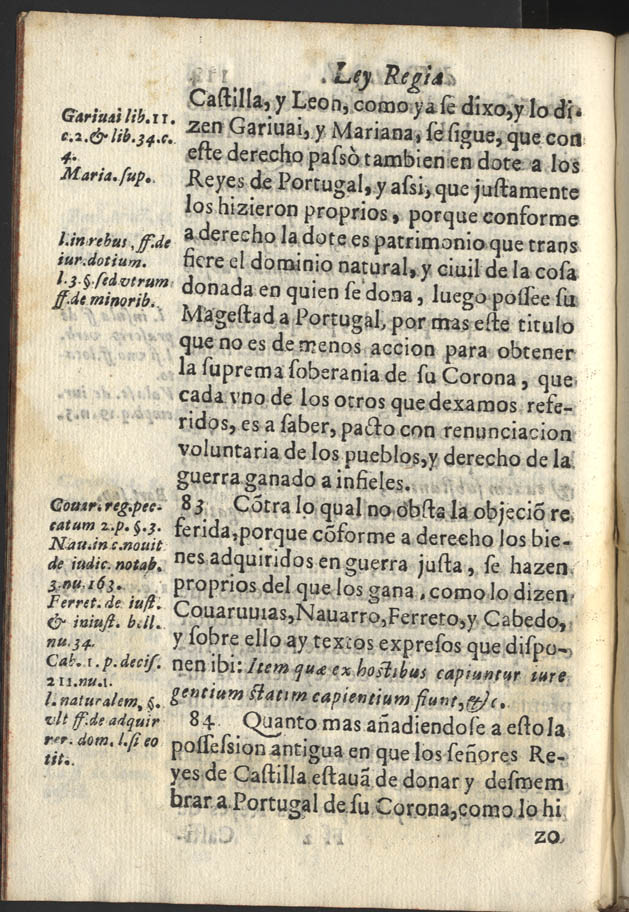 Ley Regia.
Castilla, y Leon, como ya se dixo, y lo di-
zen Gariuai, y Mariana, se sigue, que con
este derecho passò tambien en dote a los
Reyes de Portugal, y assi, que justamente
los hizieron proprios, porque conforme
a derecho la dote es patrimonio que trans
fiere el dominio natural, y ciuil de la cosa
donada en quien se dona, luego possee su
Magestad a Portugal, por mas este titulo
que no es de menos accion para obtener
la suprema soberania de su Corona, que
cada vno de los otros que dexamos refe-
ridos, es a saber, pacto con renunciacion
voluntaria de los pueblos, y derecho de la
guerra ganado a infieles.
83 Cõtra lo qual no obsta la objeciõ re
ferida, porque cõforme a derecho los bie-
nes adquiridos en guerra justa, se hazen
proprios del que los gana, como lo dizen
Couaruuias, Nauarro, Ferreto, y Cabedo,
y sobre ello ay textos expresos que dispo-
nen ibi: Item quæ ex hostibus capiuntur iure
gentium statim capientium fiunt, &c.
84 Quanto mas añadiendose a esto la
possession antigua en que los señores Re-
yes de Castilla estauã de donar y desmem
brar a Portugal de su Corona, como lo hi
zo
Gariuai lib. 11.
c. 2. & lib. 34. c.
4.
Maria. sup.
l. in rebus, ff. de
iur. dotium.
l. 3. §. sed vtrum
ff. de minorib.
Couar. reg. pec-
catum 2. p. §. 3.
Nau. in c. nouit
de iudic. notab.
3. nu. 163.
Ferret. de iust.
& iniust. bell.
nu. 34.
Cab. 1. p. decis.
211. nu. 1.
l. naturalem, §.
vlt ff. de adquir
rer. dom. l. si eo
tit.